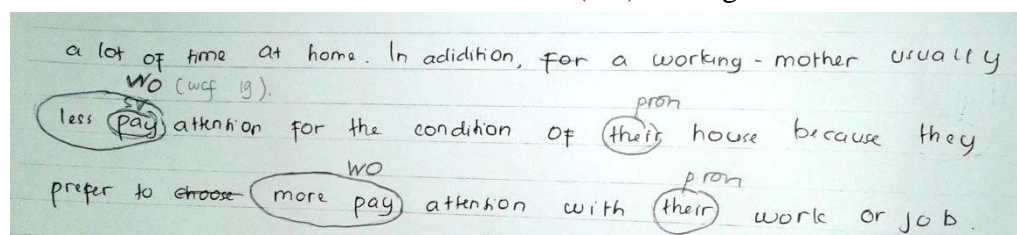 a lot of time at home. In adidition, for a working - mother usually
WO (wcf 19). pron
sv
less pay attention for the condition of their house because they
WO pron
prefer to choose more pay attention with their work or job.